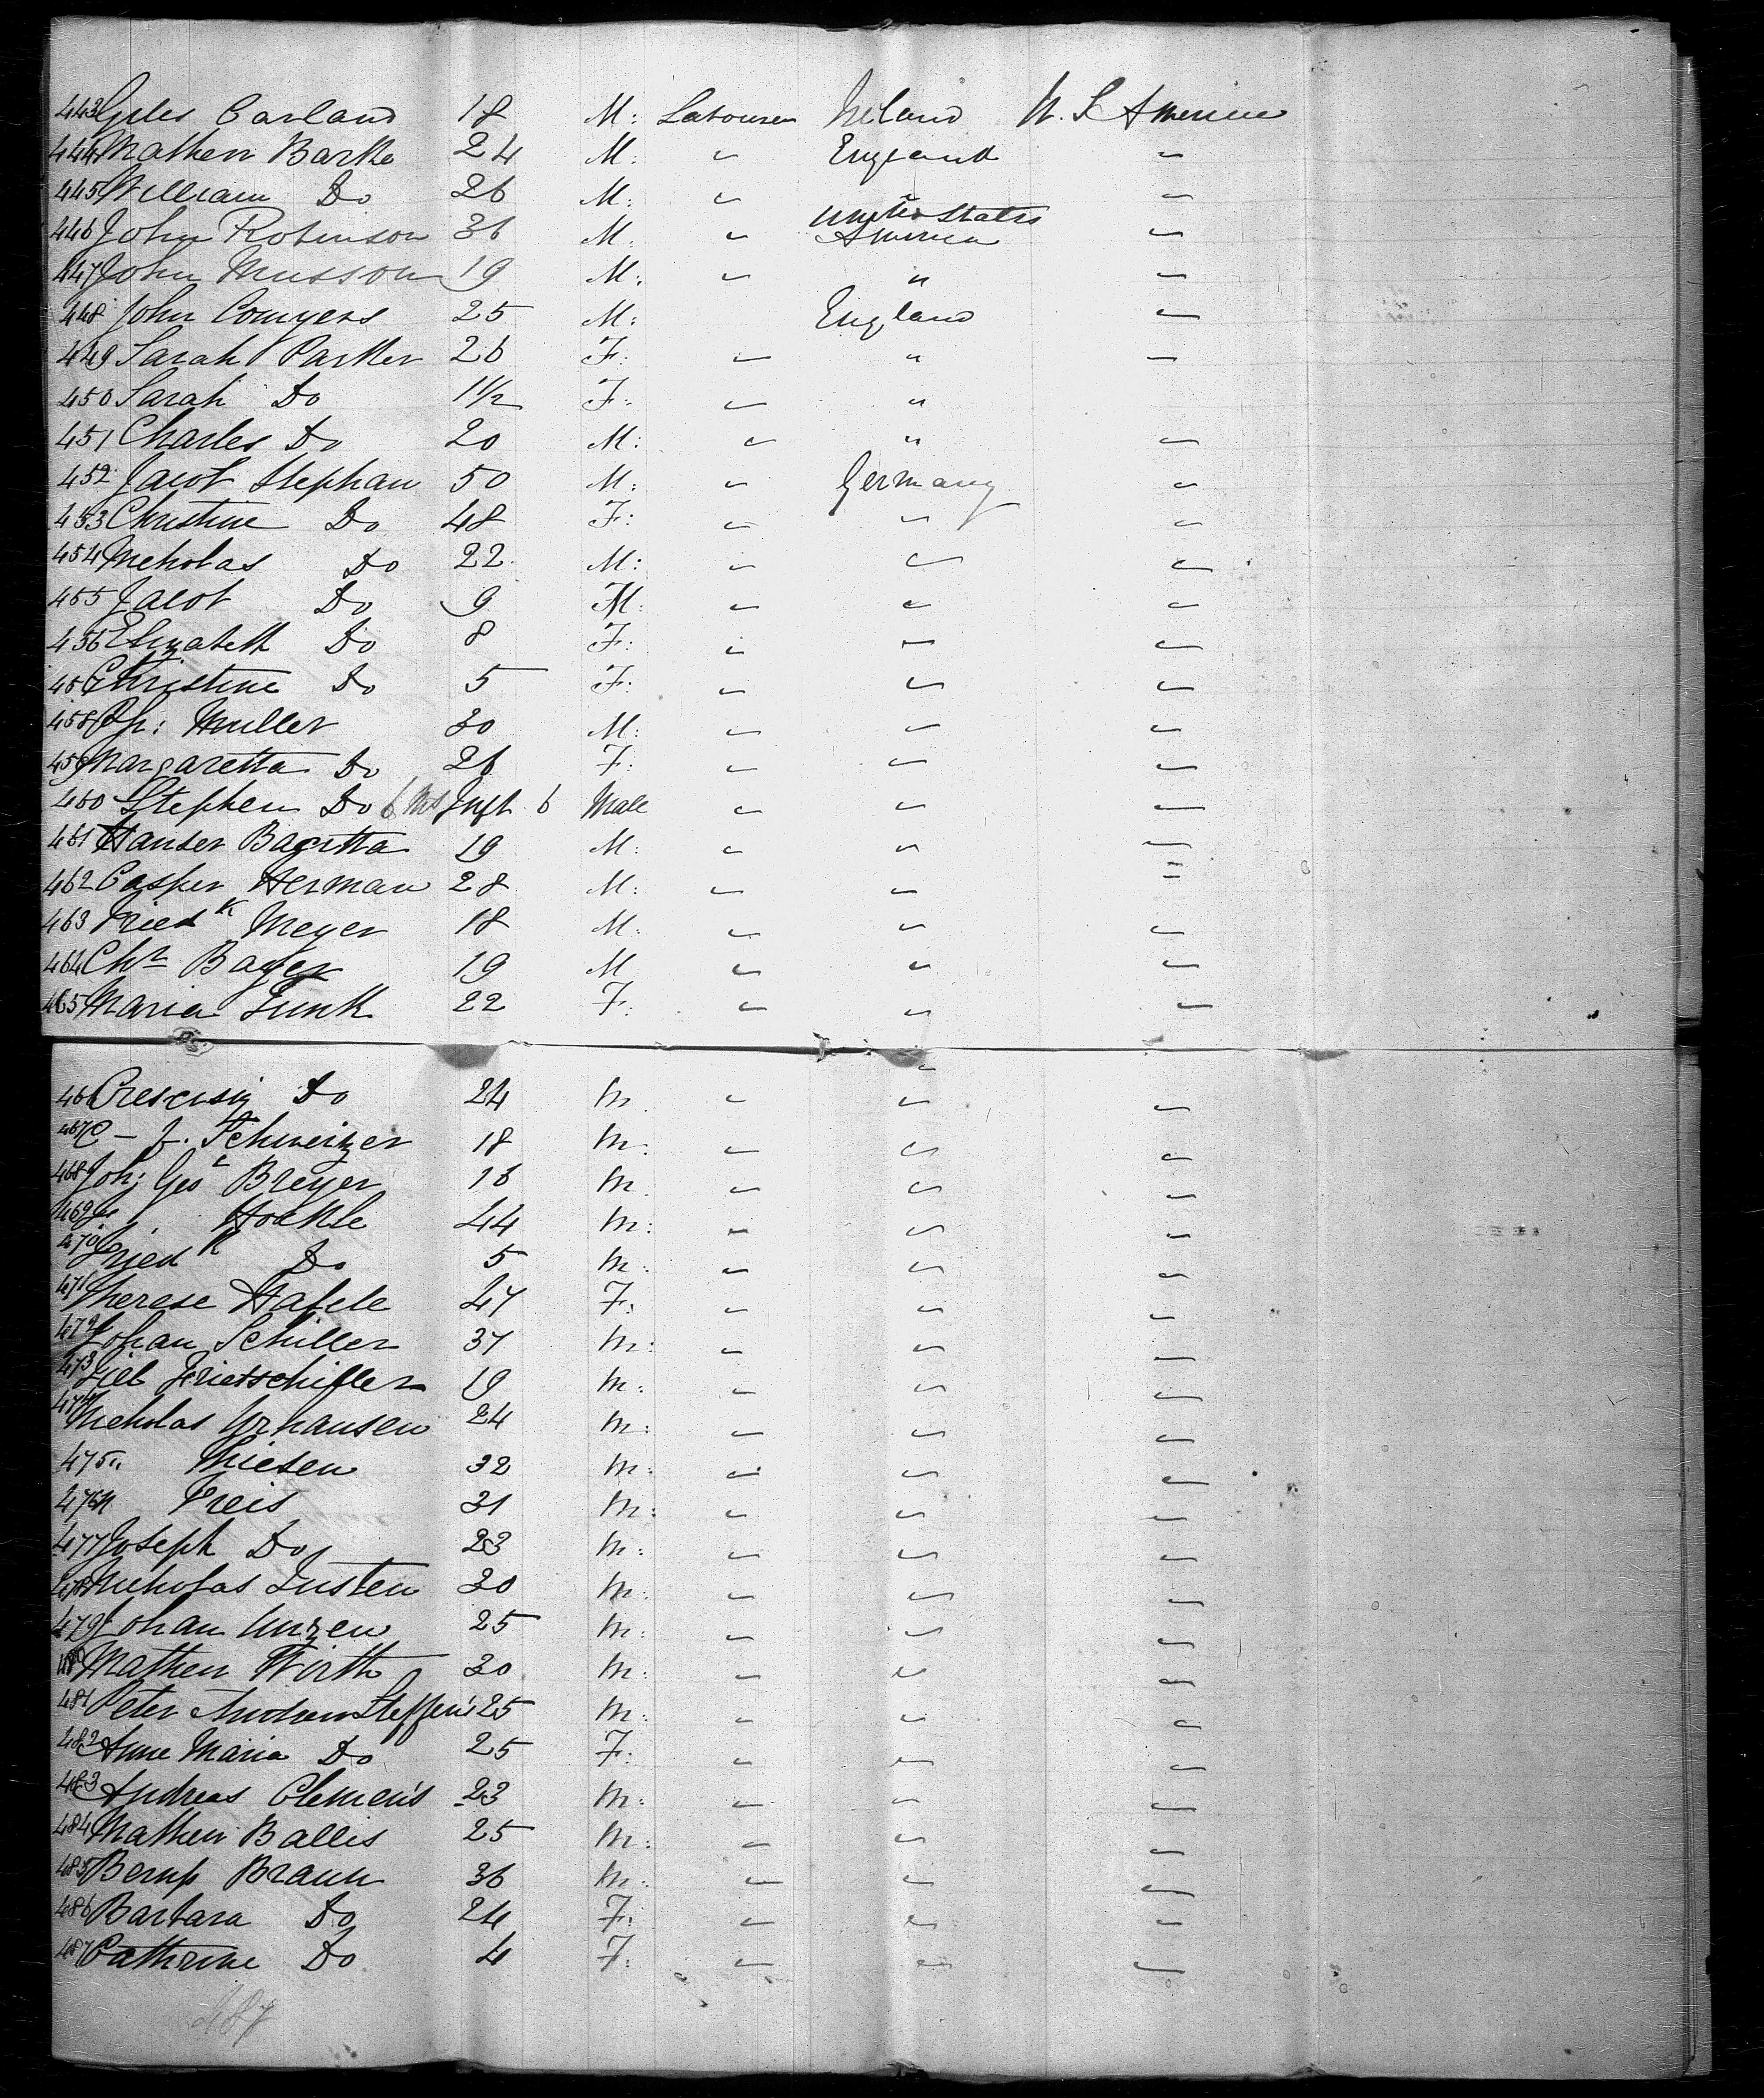 443 Giles Carland 18 M: Labourer Ireland U. S America
444 Mathew Barke 24 M: " England "
445 William Do 26 M: " " "
446 John Robinson 36 M. " United States America "
447 John Musson 19 M: " " "
448 John Comyers 25 M: England "
449 Sarah Parker 26 F: " " "
450 Sarah Do 1 1/2 F: " "
451 Charles Do 20 M: " " "
452 Jacob Stephan 50 M: " Germany "
453 Christine Do 48 F: " " "
454 Nicholas Do 22 M: " " "
455 Jacob Do 9 M: " " "
456 Elizabeth Do 8 F: " " "
457 Christine Do 5 F: " " "
458 Ph: Muller 30 M: " " "
459 Margaretta Do 26 F: " " "
460 Stephen Do 6 Ms Inft. 6 Male " " "
461 Hanser Bagitta 19 M: " " "
462 Casper Herman 28 M: " " "
463 Friedk Meyer 18 M: " " "
464 Chr Bager 19 M " " "
465 Maria Funk 22 F: " " "
466 Do 24 M " " "
467 C - J. Schweitzer 18 M: " " "
468 Joh; Geo Breyer 16 M. " " "
469 J. Hoekle 44 M: " " "
470 Friedk Do 5 M: " " "
471 Therese Hafele 47 F: " " "
472 Johan Schiller 37 M: " " "
473 19 M: " " "
474 Nicholas 24 M: " " "
475 " Thiesen 32 M: " " "
476 N Freis 31 M: " " "
477 Joseph Do 23 M: " " "
478 Nicholas Justen 30 M: " " "
479 Johan Unzen 25 M: " " "
480 Mathew Wirth 30 M: " " "
481 Peter Andrew Steffen's 25 M: " " "
482 Anne Maria Do 25 F: " " "
483 Andreas Clemen's 23 M: " " "
484 Mathew Ballis 25 M: " " "
485 Braun 36 M: " " "
486 Barbara Do 24 F: " " "
487 Cathrine Do 4 F: " " "
487